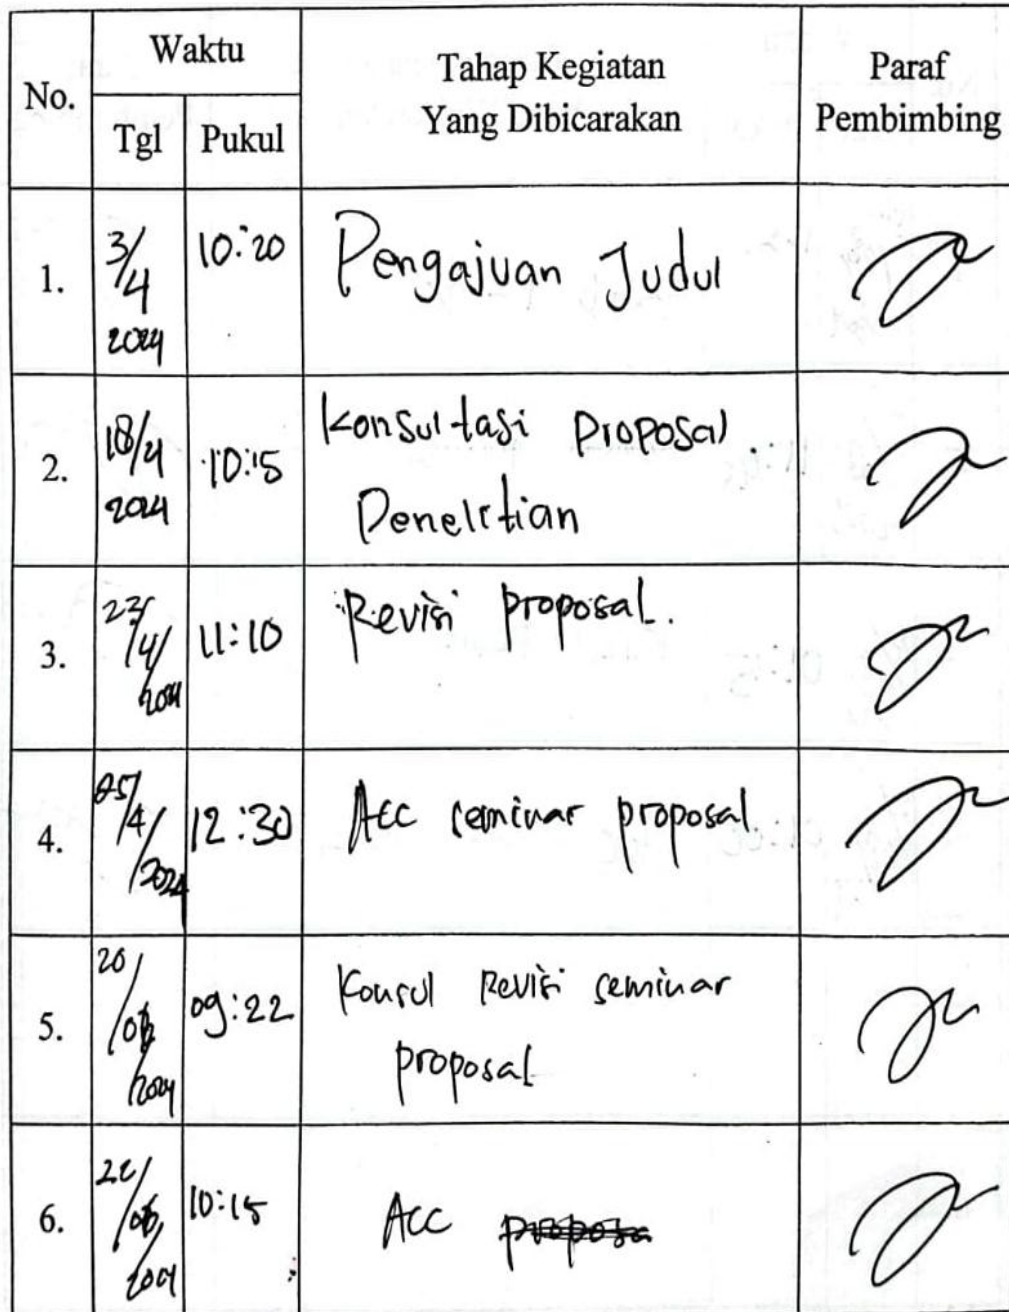 Waktu
No.
Tahap Kegiatan
Yang Dibicarakan
Paraf
Pembimbing
Tgl
Pukul
1.
3/4
2024
10:20
Pengajuan Judul
2.
18/4
2024
10:15
Konsultasi Proposal
Penelitian
3.
23/4/
2024
11:10
Revisi proposal.
4.
/4/
2024
12:30
Acc seminar proposal
5.
20/
2024
09:22
Konsul Revisi seminar
proposal
6.
2024
10:15
Acc